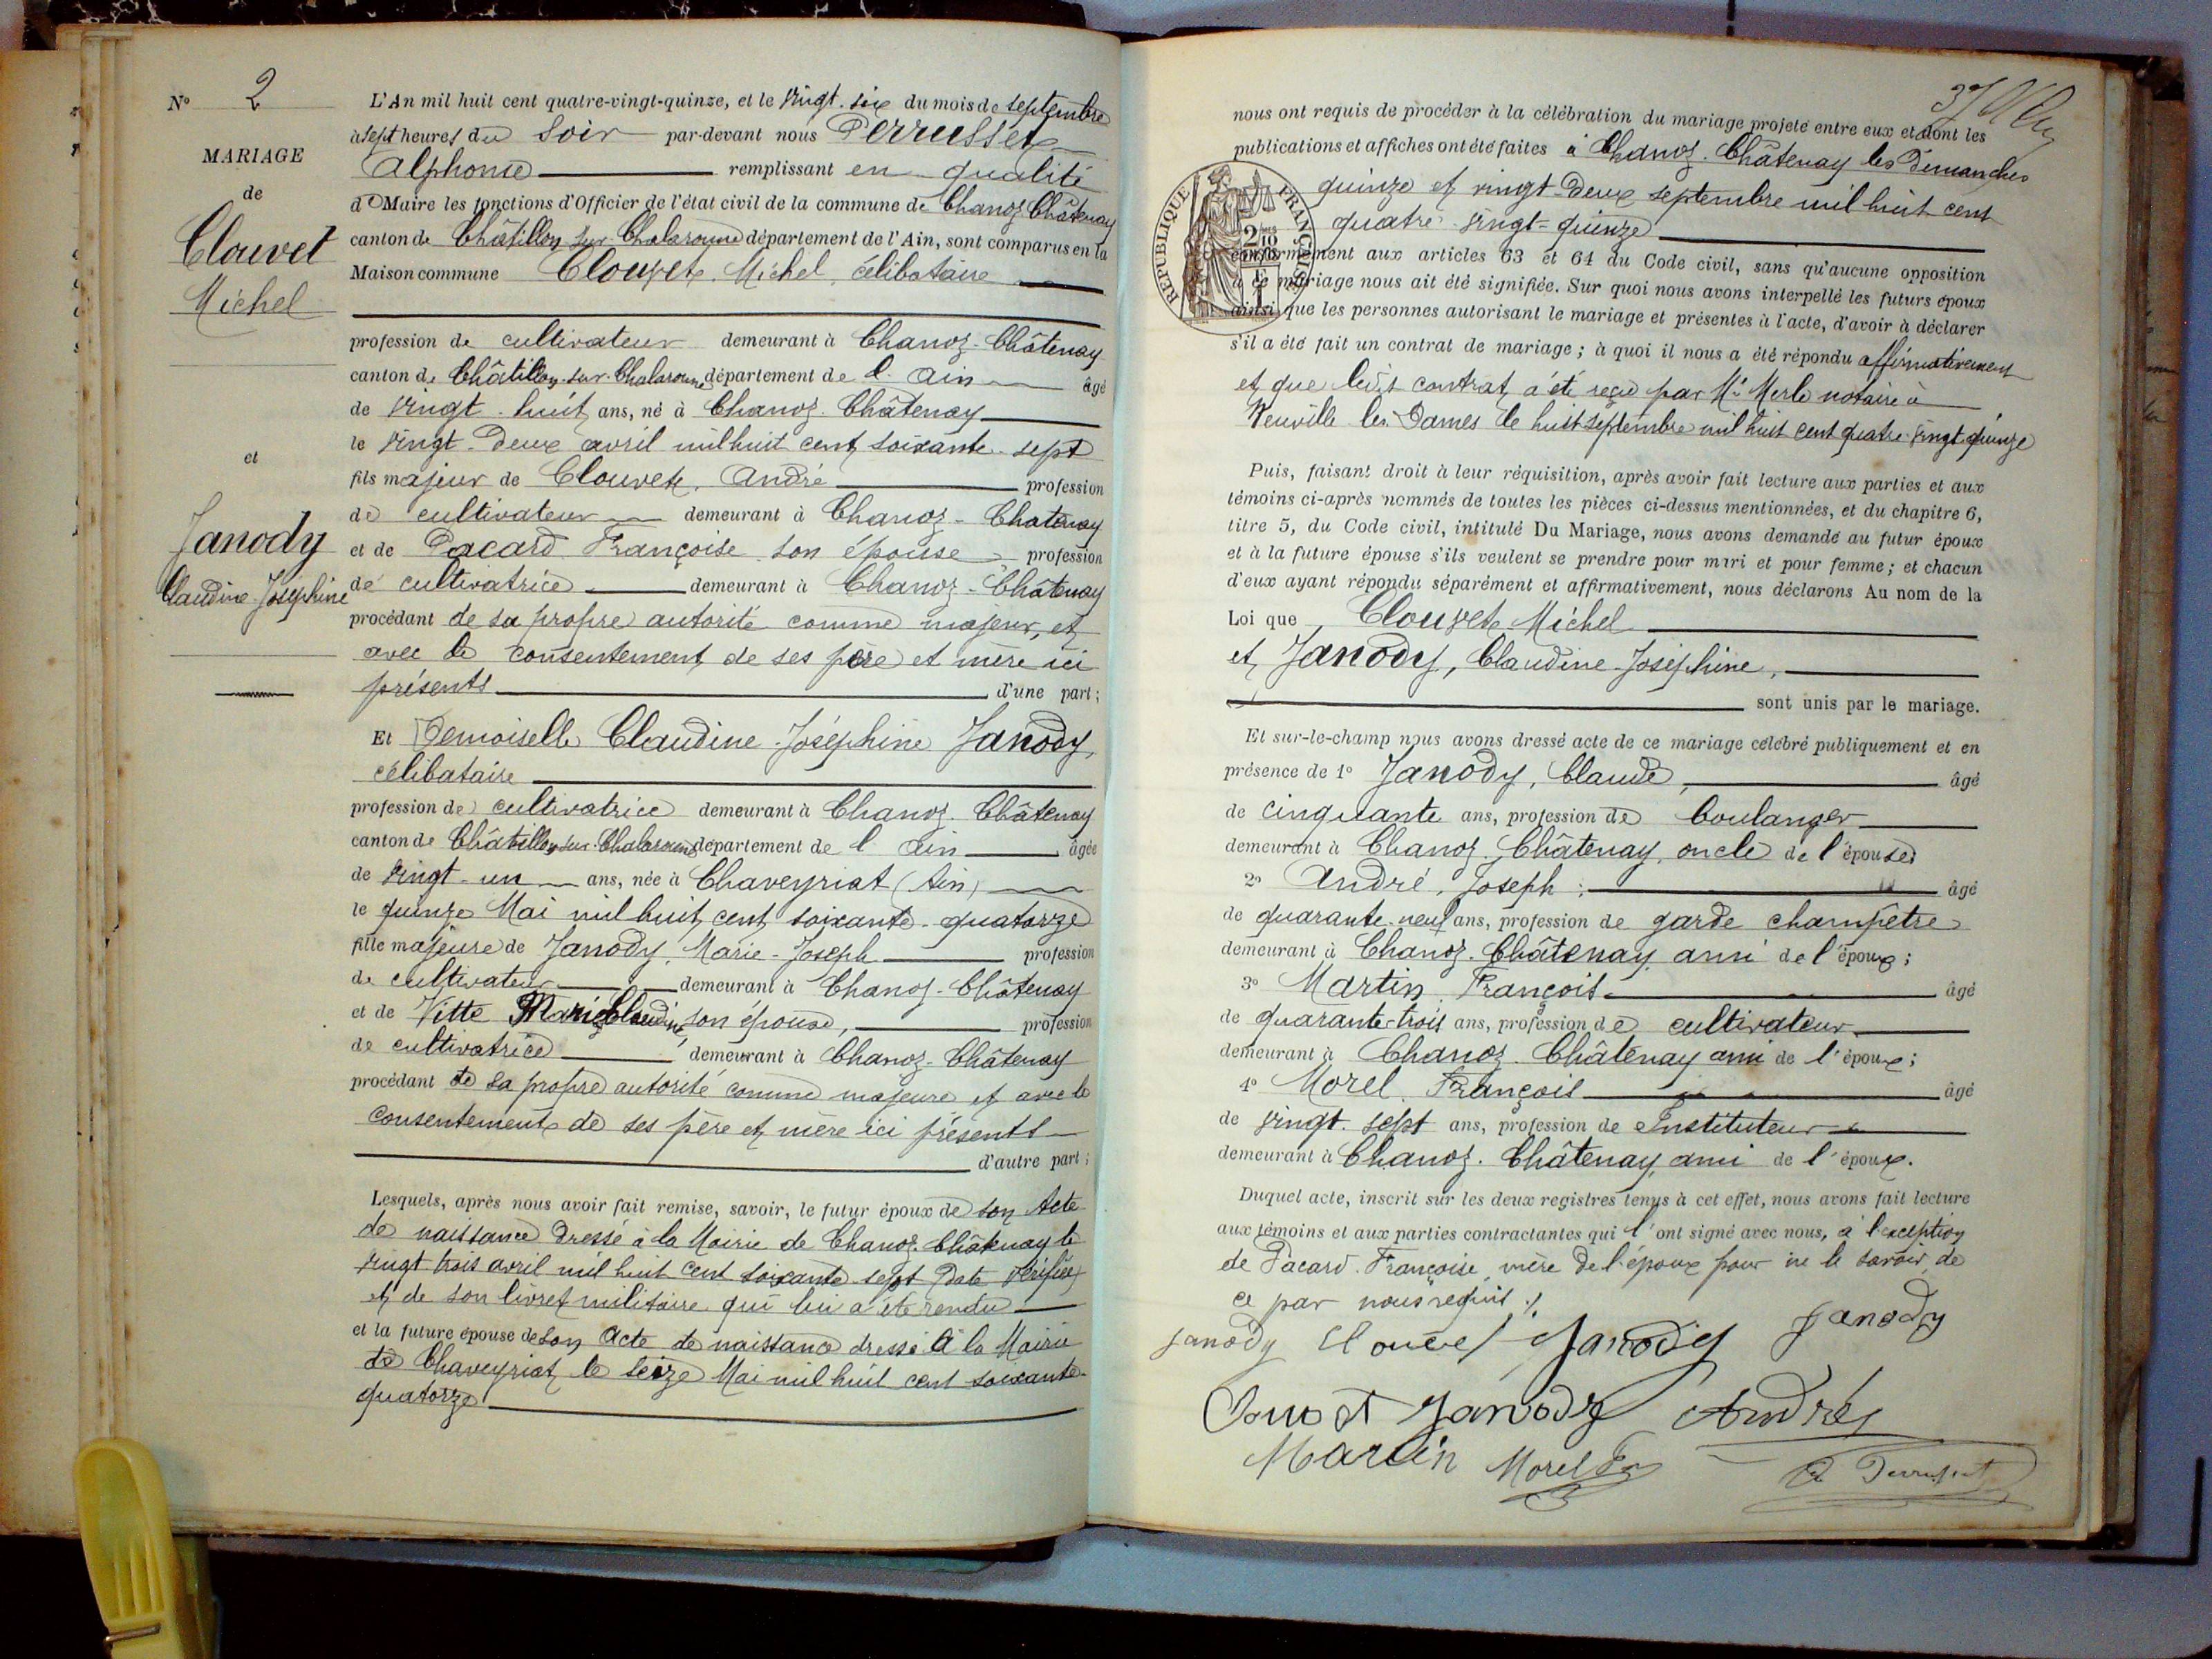 N° 2
MARIAGE
de
Clouvet
Michel
et
Janody
Claudine-Joséphine
L'An mil huit cent quatre-vingt-quinze, et le vingt-six du mois de septembre
à sept heures du soir par-devant nous Perrusset
Alphonse remplissant en qualité
de Maire les fonctions d'Officier de l'état civil de la commune de Chanoz-Châtenay
canton de Châtillon sur Chalaronne département de l'Ain, sont comparus en la
Maison commune Clouvet Michel, célibataire
profession de cultivateur demeurant à Chanoz-Châtenay
canton de Châtillon-sur-Chalaronne département de l'Ain âgé
de vingt-huit ans, né à Chanoz-Châtenay
le vingt-deux avril mil huit cent soixante-sept
fils majeur de Clouvet, André profession
de cultivateur demeurant à Chanoz-Chatenay
et de Pacard Françoise son épouse profession
de cultivatrice demeurant à Chanoz-Châtenay
procédant de sa propre autorité comme majeur, et
avec le consentement de ses père et mère ici
présents d'une part;
Et Demoiselle Claudine-Joséphine Janody,
célibataire
profession de cultivatrice demeurant à Chanoz-Châtenay
canton de Châtillon sur-Chalaronne département de l'Ain âgée
de vingt-un ans, née à Chaveyriat (Ain)
le quinze Mai mil huit cent soixante-quatorze
fille majeure de Janody, Marie-Joseph profession
de cultivateur demeurant à Chanoz-Châtenay
et de Vitte Marie Claudine son épouse, profession
de cultivatrice demeurant à Chanoz-Châtenay
procédant de sa propre autorité comme majeure et avec le
consentement de ses père et mère ici présents
d'autre part;
Lesquels, après nous avoir fait remise, savoir, le futur époux de son Acte
de naissance dressé à la Mairie de Chanoz-Châtenay le
vingt trois avril mil huit cent soixante sept date vérifiée
et de son livret militaire qui lui a été rendu
et la future épouse de son Acte de naissance dressé à la Mairie
de Chaveyriat le seize Mai mil huit cent soixante-
quatorze
37
nous ont requis de procéder à la célébration du mariage projeté entre eux et dont les
publications et affiches ont été faites à Chanoz-Châtenay les Dimanches
quinze et vingt-deux septembre mil huit cent
quatre-vingt-quinze
RÉPUBLIQUE FRANÇAISE
2/10
conformément aux articles 63 et 64 du Code civil, sans qu'aucune opposition
à ce mariage nous ait été signifiée. Sur quoi nous avons interpellé les futurs époux
ainsi que les personnes autorisant le mariage et présentes à l'acte, d'avoir à déclarer
s'il a été fait un contrat de mariage; à quoi il nous a été répondu affirmativement
et que ledit contrat a été reçu par Me Merle notaire à
Neuville les Dames le huit septembre mil huit cent quatre vingt quinze
Puis, faisant droit à leur réquisition, après avoir fait lecture aux parties et aux
témoins ci-après nommés de toutes les pièces ci-dessus mentionnées, et du chapitre 6,
titre 5, du Code civil, intitulé Du Mariage, nous avons demandé au futur époux
et à la future épouse s'ils veulent se prendre pour mari et pour femme; et chacun
d'eux ayant répondu séparément et affirmativement, nous déclarons Au nom de la
Loi que Clouvet Michel
et Janody, Claudine-Joséphine,
sont unis par le mariage.
Et sur-le-champ nous avons dressé acte de ce mariage célébré publiquement et en
présence de 1° Janody, Claude, âgé
de cinquante ans, profession de boulanger
demeurant à Chanoz-Châtenay, oncle de l'épouse;
2° André, Joseph, âgé
de quarante-neuf ans, profession de garde champêtre
demeurant à Chanoz-Châtenay ami de l'époux;
3° Martin François âgé
de quarante-trois ans, profession de cultivateur
demeurant à Chanoz-Châtenay ami de l'époux;
4° Morel François âgé
de vingt-sept ans, profession de Instituteur
demeurant à Chanoz-Châtenay ami de l'époux.
Duquel acte, inscrit sur les deux registres tenus à cet effet, nous avons fait lecture
aux témoins et aux parties contractantes qui l'ont signé avec nous, à l'exception
de Pacard Françoise, mère de l'époux pour ne le savoir, de
ce par nous requis ./.
Janody Clouvet Janody Janody
Janody André
Martin Morel Fr
A Perrusset